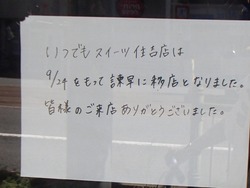 いつでもスイーツ住吉店は
9/24をもって諫早に移店となりました。
皆様のご来店ありがとうございました。